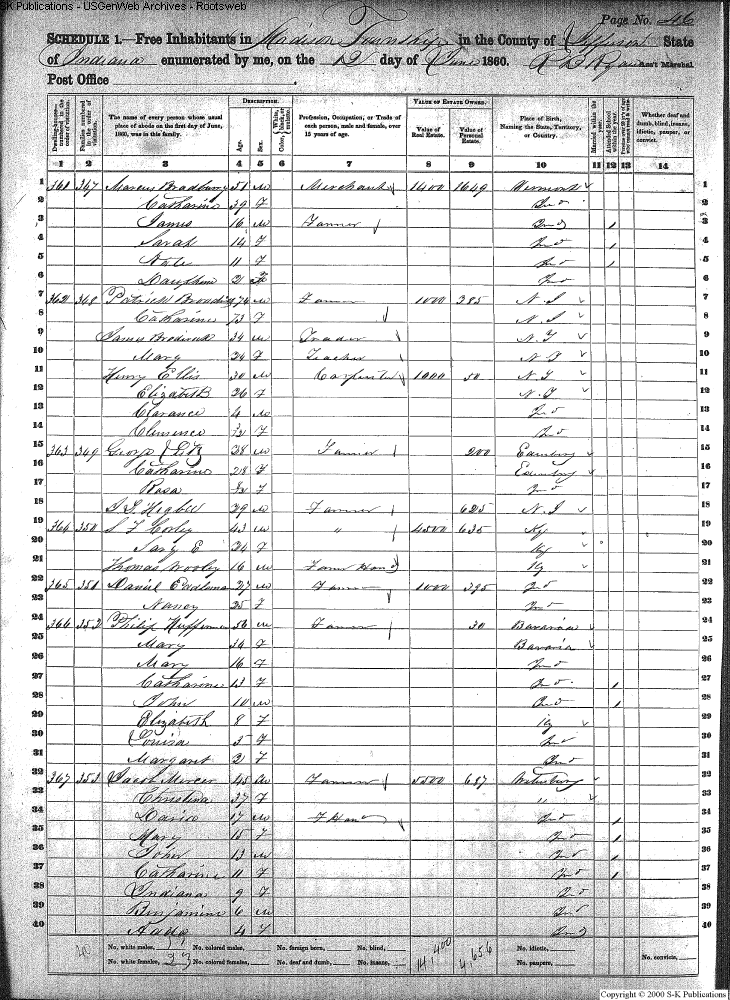 S-K Publications - USGenWeb Archives - Rootsweb
Page No. 46
SCHEDULE 1.—Free Inhabitants in Madison Township in the County of Jefferson State
of Indiana enumerated by me, on the 12 day of June 1860. Ass't Marshal
Post Office
Dwelling-houses—numbered in the order of visitation.
Families numbered in the order of visitation.
The name of every person whose usual place of abode on the first day of June, 1860, was in this family.
DESCRIPTION.
Age.
Sex.
Color, White, black, or mulatto.
Profession, Occupation, or Trade of each person, male and female, over 15 years of age.
VALUE OF ESTATE OWNED.
Value of Real Estate.
Value of Personal Estate.
Place of Birth, Naming the State, Territory, or Country.
Married within the year.
Attended School within the year.
Whether deaf and dumb, blind, insane, idiotic, pauper, or convict.
1 2 3 4 5 6 7 8 9 10 11 12 13 14
1 361 347 Marcus Bradbury 51 m Merchant 1400 1649 Vermont 1
2 Catharine 39 F Ind 2
3 James 16 m Ind 3
4 Sarah 14 F Ind 1 4
5 11 F Ind 1 5
6 2 Ind 6
7 362 348 Patrick 74 m 1000 285 N. J 7
8 Catharine 73 F N. J 8
9 James 34 m Trader 9
10 Mary 24 F Teacher 10
11 Henry Ellis 30 m Carpenter 1000 50 11
12 Elizabeth 26 F 12
13 Clarance 4 m Ind 13
14 F Ind 14
15 363 349 George 28 m Farmer 200 15
16 Catharine 28 F 16
17 Rosa F Ind 17
18 Higbee 29 m Farmer 625 N. J 18
19 364 350 S F Corley 43 m " 4500 635 Ky 19
20 E 24 F Ky 20
21 Thomas Wooley 16 m Farm Hand Ky 21
22 365 351 Daniel 27 m Farmer 1000 395 Ind 22
23 Nancy 25 F Ind 23
24 366 352 Philip Huffman 56 m Farmer 30 Bavaria 24
25 Mary 34 F Bavaria 25
26 Mary 16 F Ind 26
27 Catharine 13 F Ind 1 27
28 John 10 m Ind 1 28
29 Elizabeth 8 F Ky 29
30 Louisa 5 F Ind 30
31 Margaret 2 F Ind 31
32 367 353 Jacob Mercer 45 m Farmer 5500 687 32
33 Christina 37 F " 33
34 17 m F Hand Ind 1 34
35 Mary 15 F Ind 1 35
36 John 13 m Ind 1 36
37 Catharine 11 F Ind 1 37
38 Indiana 9 F Ind 38
39 Benjamine 6 m Ind 39
40 4 F Ind 40
No. white males, No. colored males, No. foreign born, No. blind, 14,400 4,656 No. idiotic,
No. white females, 23 No. colored females, No. deaf and dumb, No. insane, No. paupers, No. convicts,
Copyright © 2000 S-K Publications